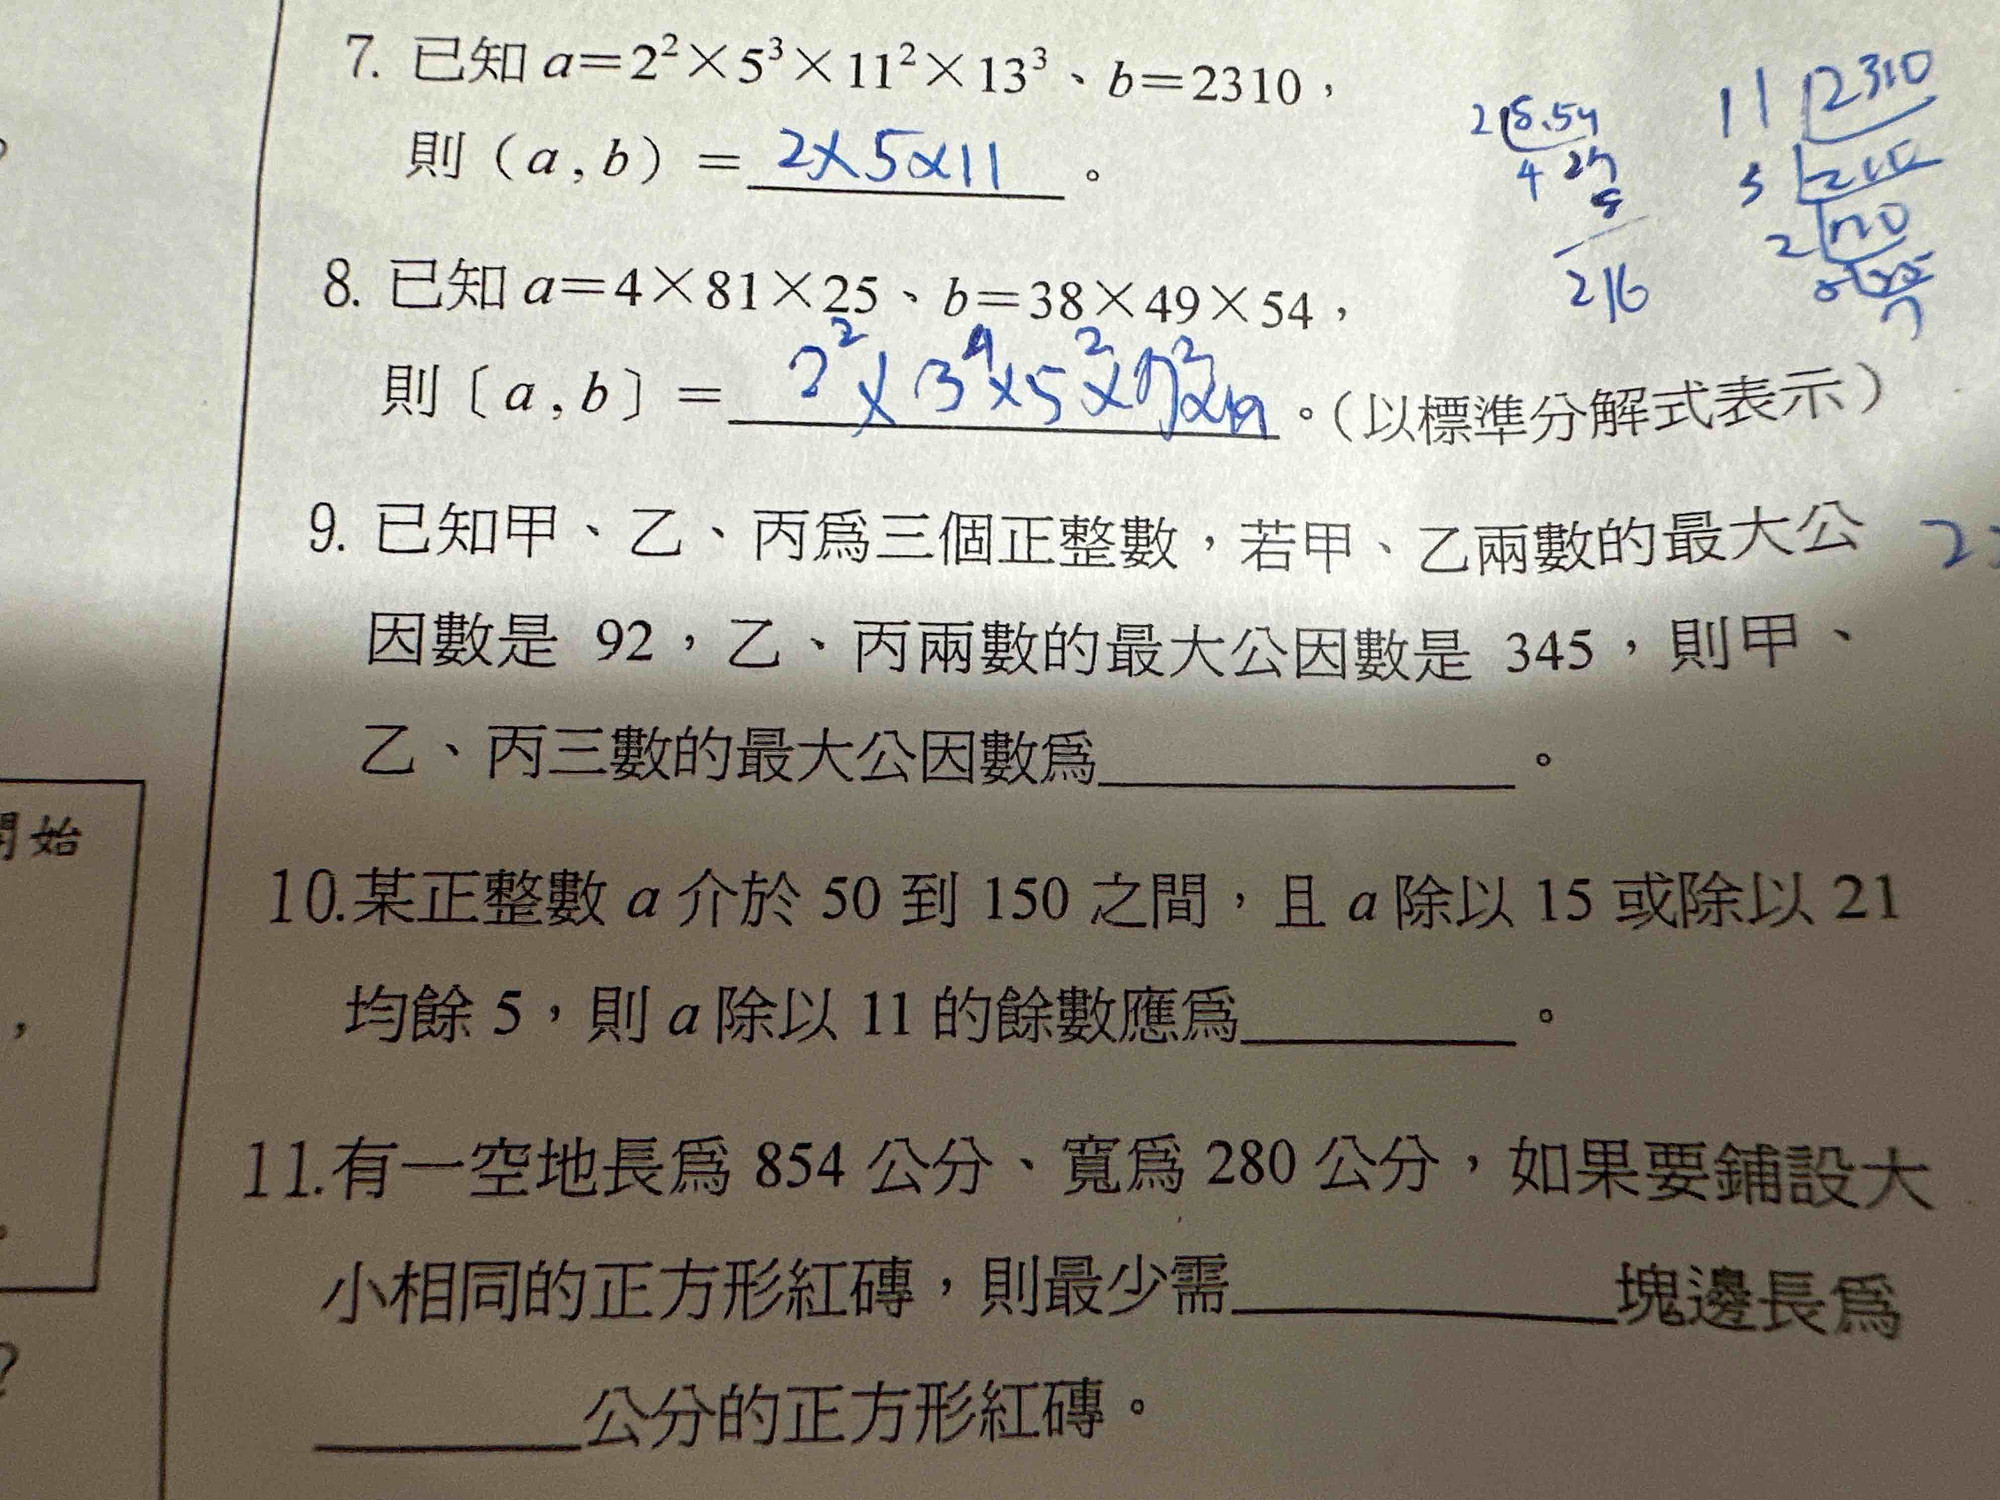 7. 已知 a=2²×5³×11²×13³、b=2310，
則（a , b）= 2×5×11 。
8. 已知 a=4×81×25、b=38×49×54，
則〔a , b〕= 2²×3⁴×5²×7²×19 。（以標準分解式表示）
9. 已知甲、乙、丙為三個正整數，若甲、乙兩數的最大公
因數是 92，乙、丙兩數的最大公因數是 345，則甲、
乙、丙三數的最大公因數為＿＿＿＿＿＿。
10.某正整數 a 介於 50 到 150 之間，且 a 除以 15 或除以 21
均餘 5，則 a 除以 11 的餘數應為＿＿＿＿。
11.有一空地長為 854 公分、寬為 280 公分，如果要鋪設大
小相同的正方形紅磚，則最少需＿＿＿＿＿＿塊邊長為
＿＿＿＿公分的正方形紅磚。
11 2310
216
始
，
?